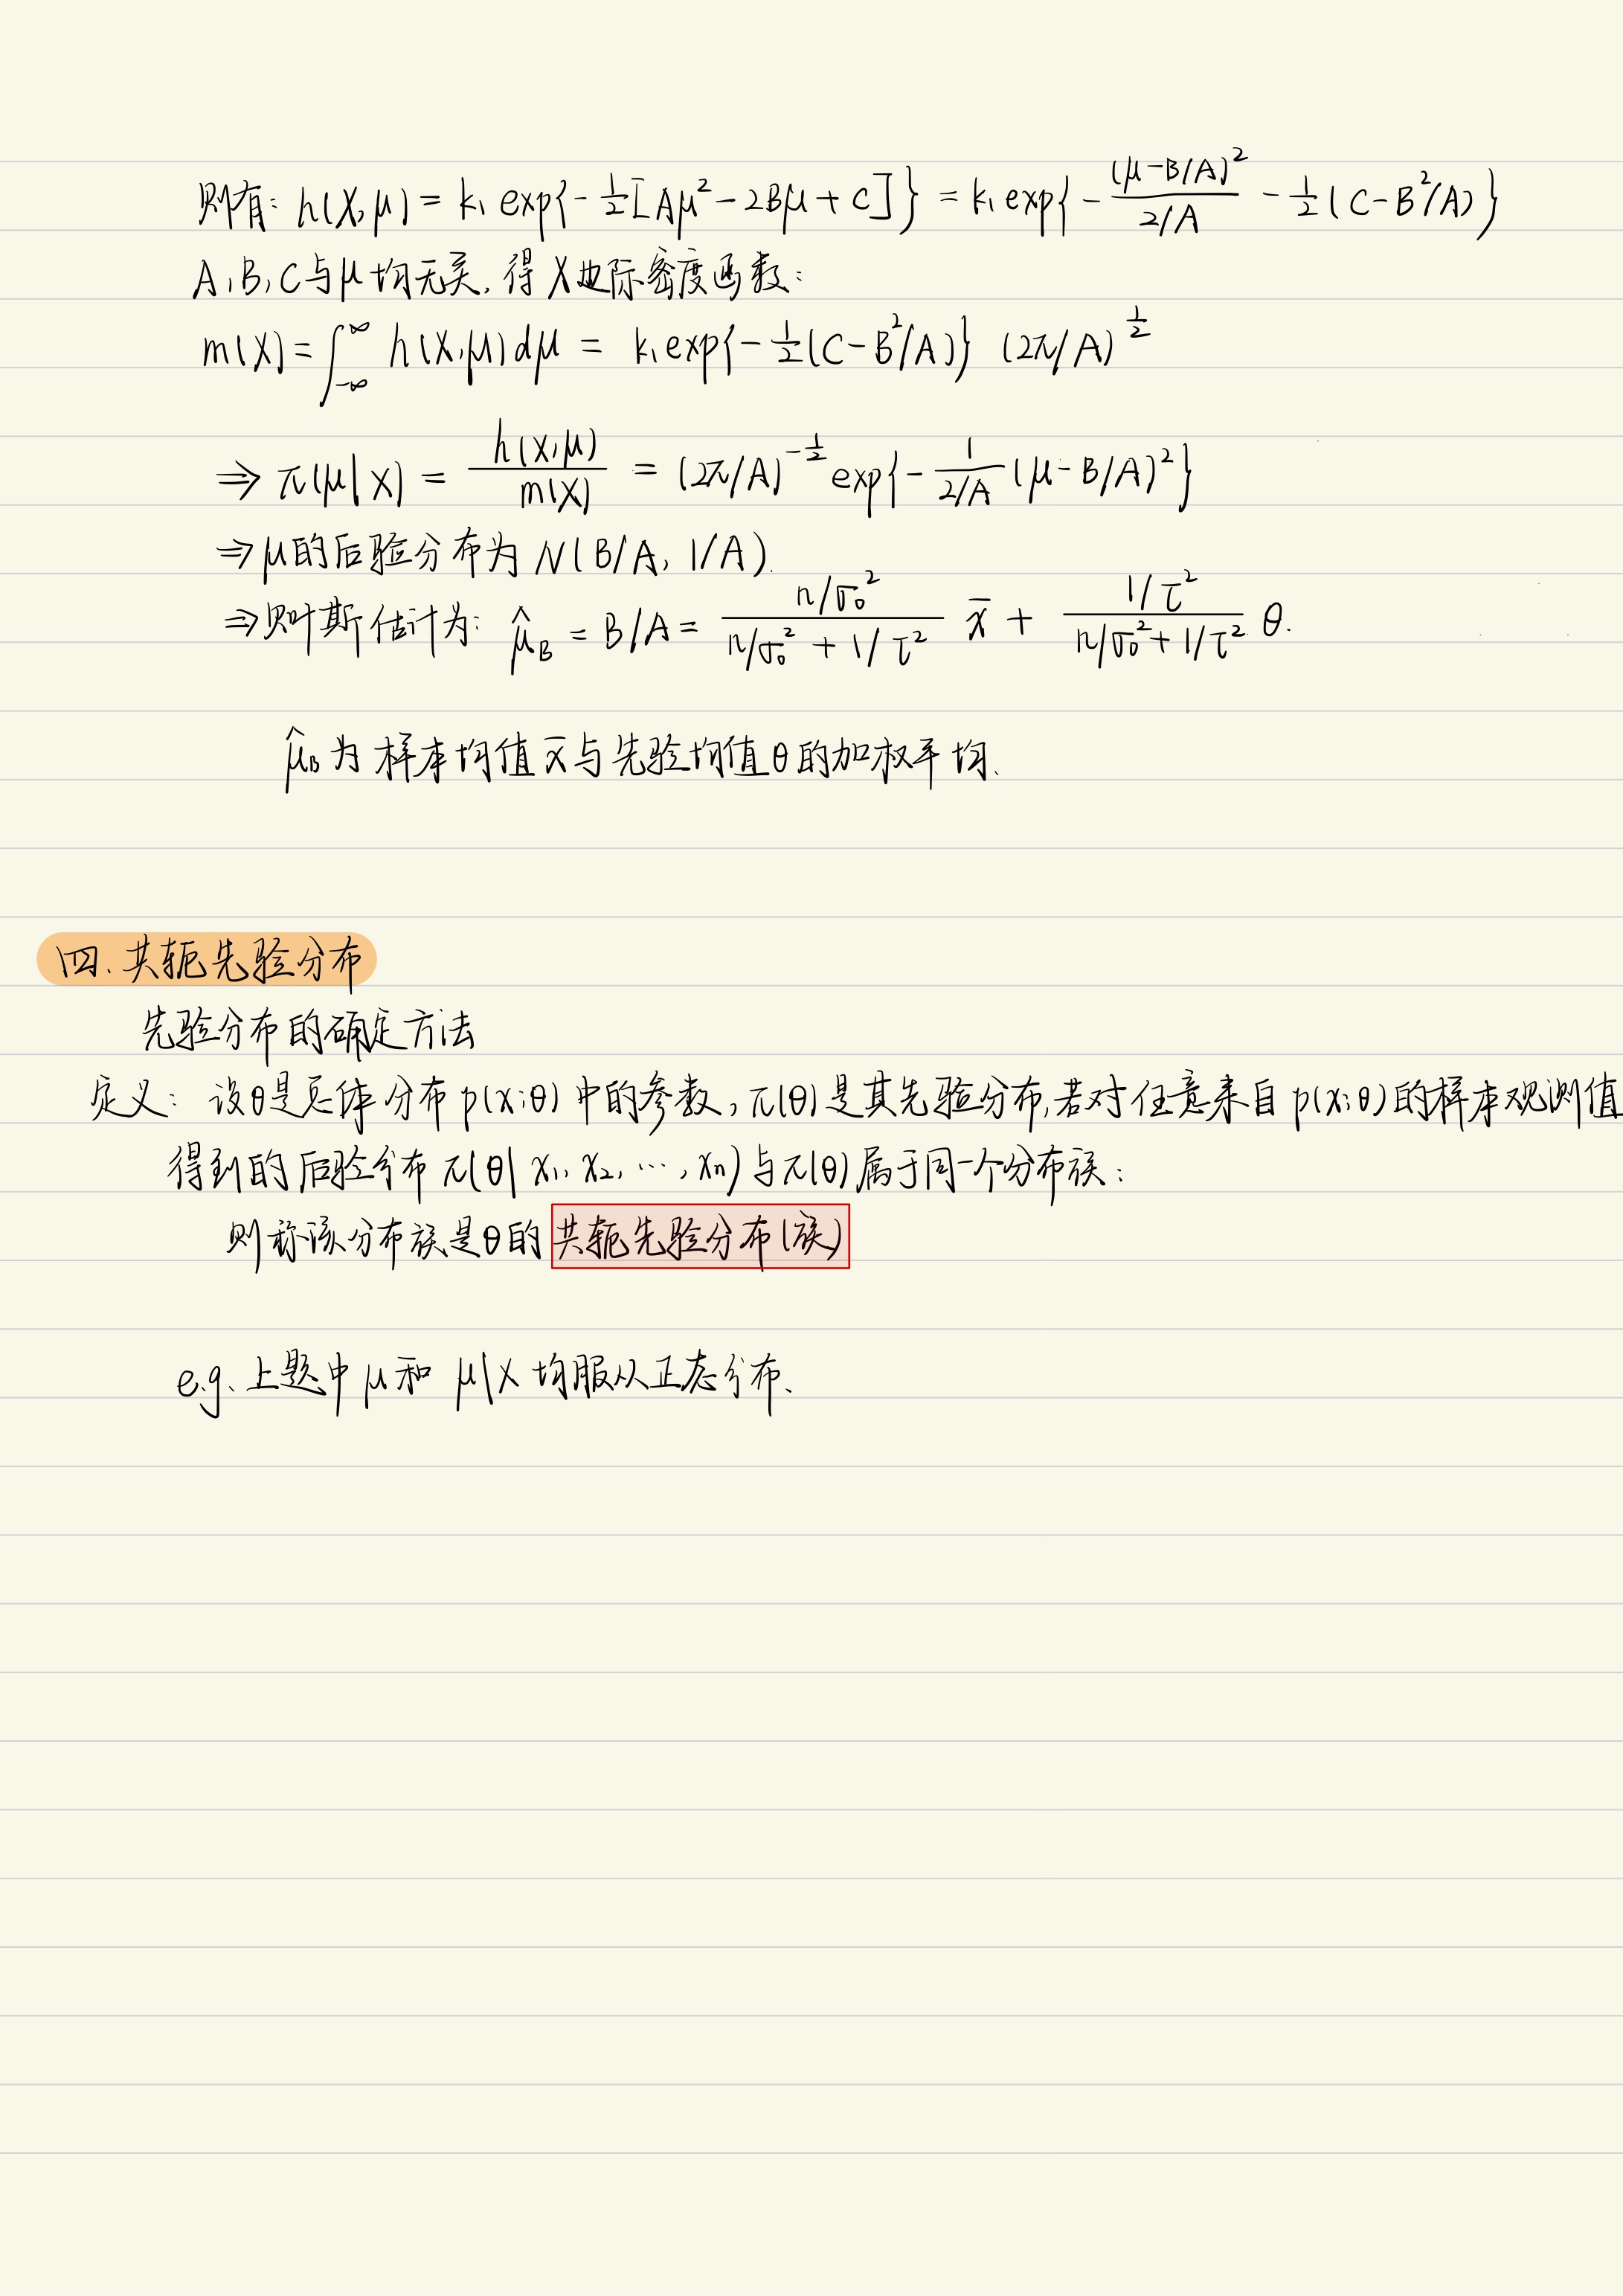 则有: h(X,μ) = k₁ exp{-½[Aμ²-2Bμ+C]} = k₁ exp{-(μ-B/A)²/(2/A) - ½(C-B²/A)}
A,B,C与μ均无关,得X边际密度函数:
m(X)=∫_{-∞}^{∞} h(X,μ)dμ = k₁exp{-½(C-B²/A)} (2π/A)^{½}
⇒ π(μ|X) = h(X,μ)/m(X) = (2π/A)^{-½} exp{-1/(2/A) (μ-B/A)²}
⇒μ的后验分布为 N(B/A, 1/A).
⇒贝叶斯估计为: μ̂_B = B/A = (n/σ₀²)/(n/σ₀² + 1/τ²) x̄ + (1/τ²)/(n/σ₀²+1/τ²) θ.
μ̂_B为样本均值x̄与先验均值θ的加权平均.
四.共轭先验分布
先验分布的确定方法
定义: 设θ是总体分布p(x;θ)中的参数,π(θ)是其先验分布,若对任意来自p(x;θ)的样本观测值
得到的后验分布π(θ|x₁,x₂,…,xn)与π(θ)属于同一个分布族:
则称该分布族是θ的共轭先验分布(族)
e.g.上题中μ和 μ|X 均服从正态分布.